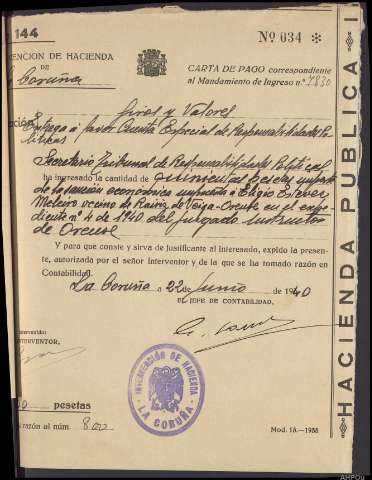 144
Nº 034 *
ENCION DE HACIENDA
DE
Coruña
CARTA DE PAGO correspondiente
al Mandamiento de Ingreso n.º 7830
Giros y Valores
Entrega a favor Cuenta Especial de Responsabilidades Po
líticas
Secretario Tribunal de Responsabilidades Políticas
ha ingresado la cantidad de quinientas pesetas importe
de la sanción económica impuesta a Eligio Esteves
Meleiro vecino de Rairiz de Veiga-Orense en el expe
diente nº 4 de 1940 del Juzgado Instructor
de Orense
Y para que conste y sirva de justificante al interesado, expido la presente,
autorizada por el señor Interventor y de la que se ha tomado razón en
Contabilidad.
La Coruña a 22 de Junio de 1940
EL JEFE DE CONTABILIDAD,
INTERVENTOR,
INTERVENCIÓN DE HACIENDA
LA CORUÑA
pesetas
razón al núm 800
Mod. 1A-1938
HACIENDA PUBLICA
AHPOu